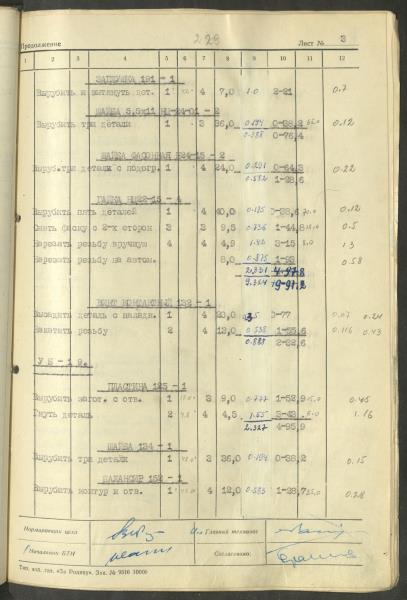 Продолжение 229 Лист № 3
1 2 3 4 5 6 7 8 9 10 11 12
ЗАГЛУШКА 191 - 1
Вырубить и вытянуть дет. 1 4 7,0 1.0 2-21 0.7
ШАЙБА 5,5х11 НД-24-01 - 2
Вырубить три детали 1 3 36,0 0.194 0-38,2 0.12
0.388 0-76,4
ШАЙБА ФАСОННАЯ Н24-15 - 2
Выруб.три детали с подогр. 1 4 24,0 0.291 0-64,3 0.22
0.582 1-28,6
ГАЙКА НД22-15 - 4
Вырубить пять деталей 1 4 40,0 0.175 0-38,6 0.12
Снять фаску с 2-х сторон 3 3 9,5 0.736 1-44,8 0.5
Нарезать резьбу вручную 4 4 4,9 1.42 3-15 1.3
Нарезать резьбу на автом. 8,0 0.875 1-93 0.58
2.331 4-97.8
9.324 19-91.2
ВИНТ КОНТАКТНЫЙ 132 - 1
Высадить деталь с наладк. 1 4 20,0 0-77 0.07 0.24
Накатать резьбу 2 4 13,0 0.538 0.116 0.43
0.888 2-22,6
У Б - 19.
ПЛАСТИНА 125 - 1
Вырубить загот. с отв. 1 3 9,0 0.777 1-52,9 0.45
Гнуть деталь 2 4 4,5 1.55 3-43 1.16
2.327 4-95,9
ШАЙБА 134 - 1
Вырубить три детали 3 36,0 0.194 0-38,2 0.15
БАЛАНСИР 152 - 1
Вырубить контур и отв. 1 4 12,0 0.583 1-28,7
Нормировщик цеха
Главный технолог
Начальник БТН
Согласовано:
Тип. изд. газ. «За Родину». Зак. № 9516 10000